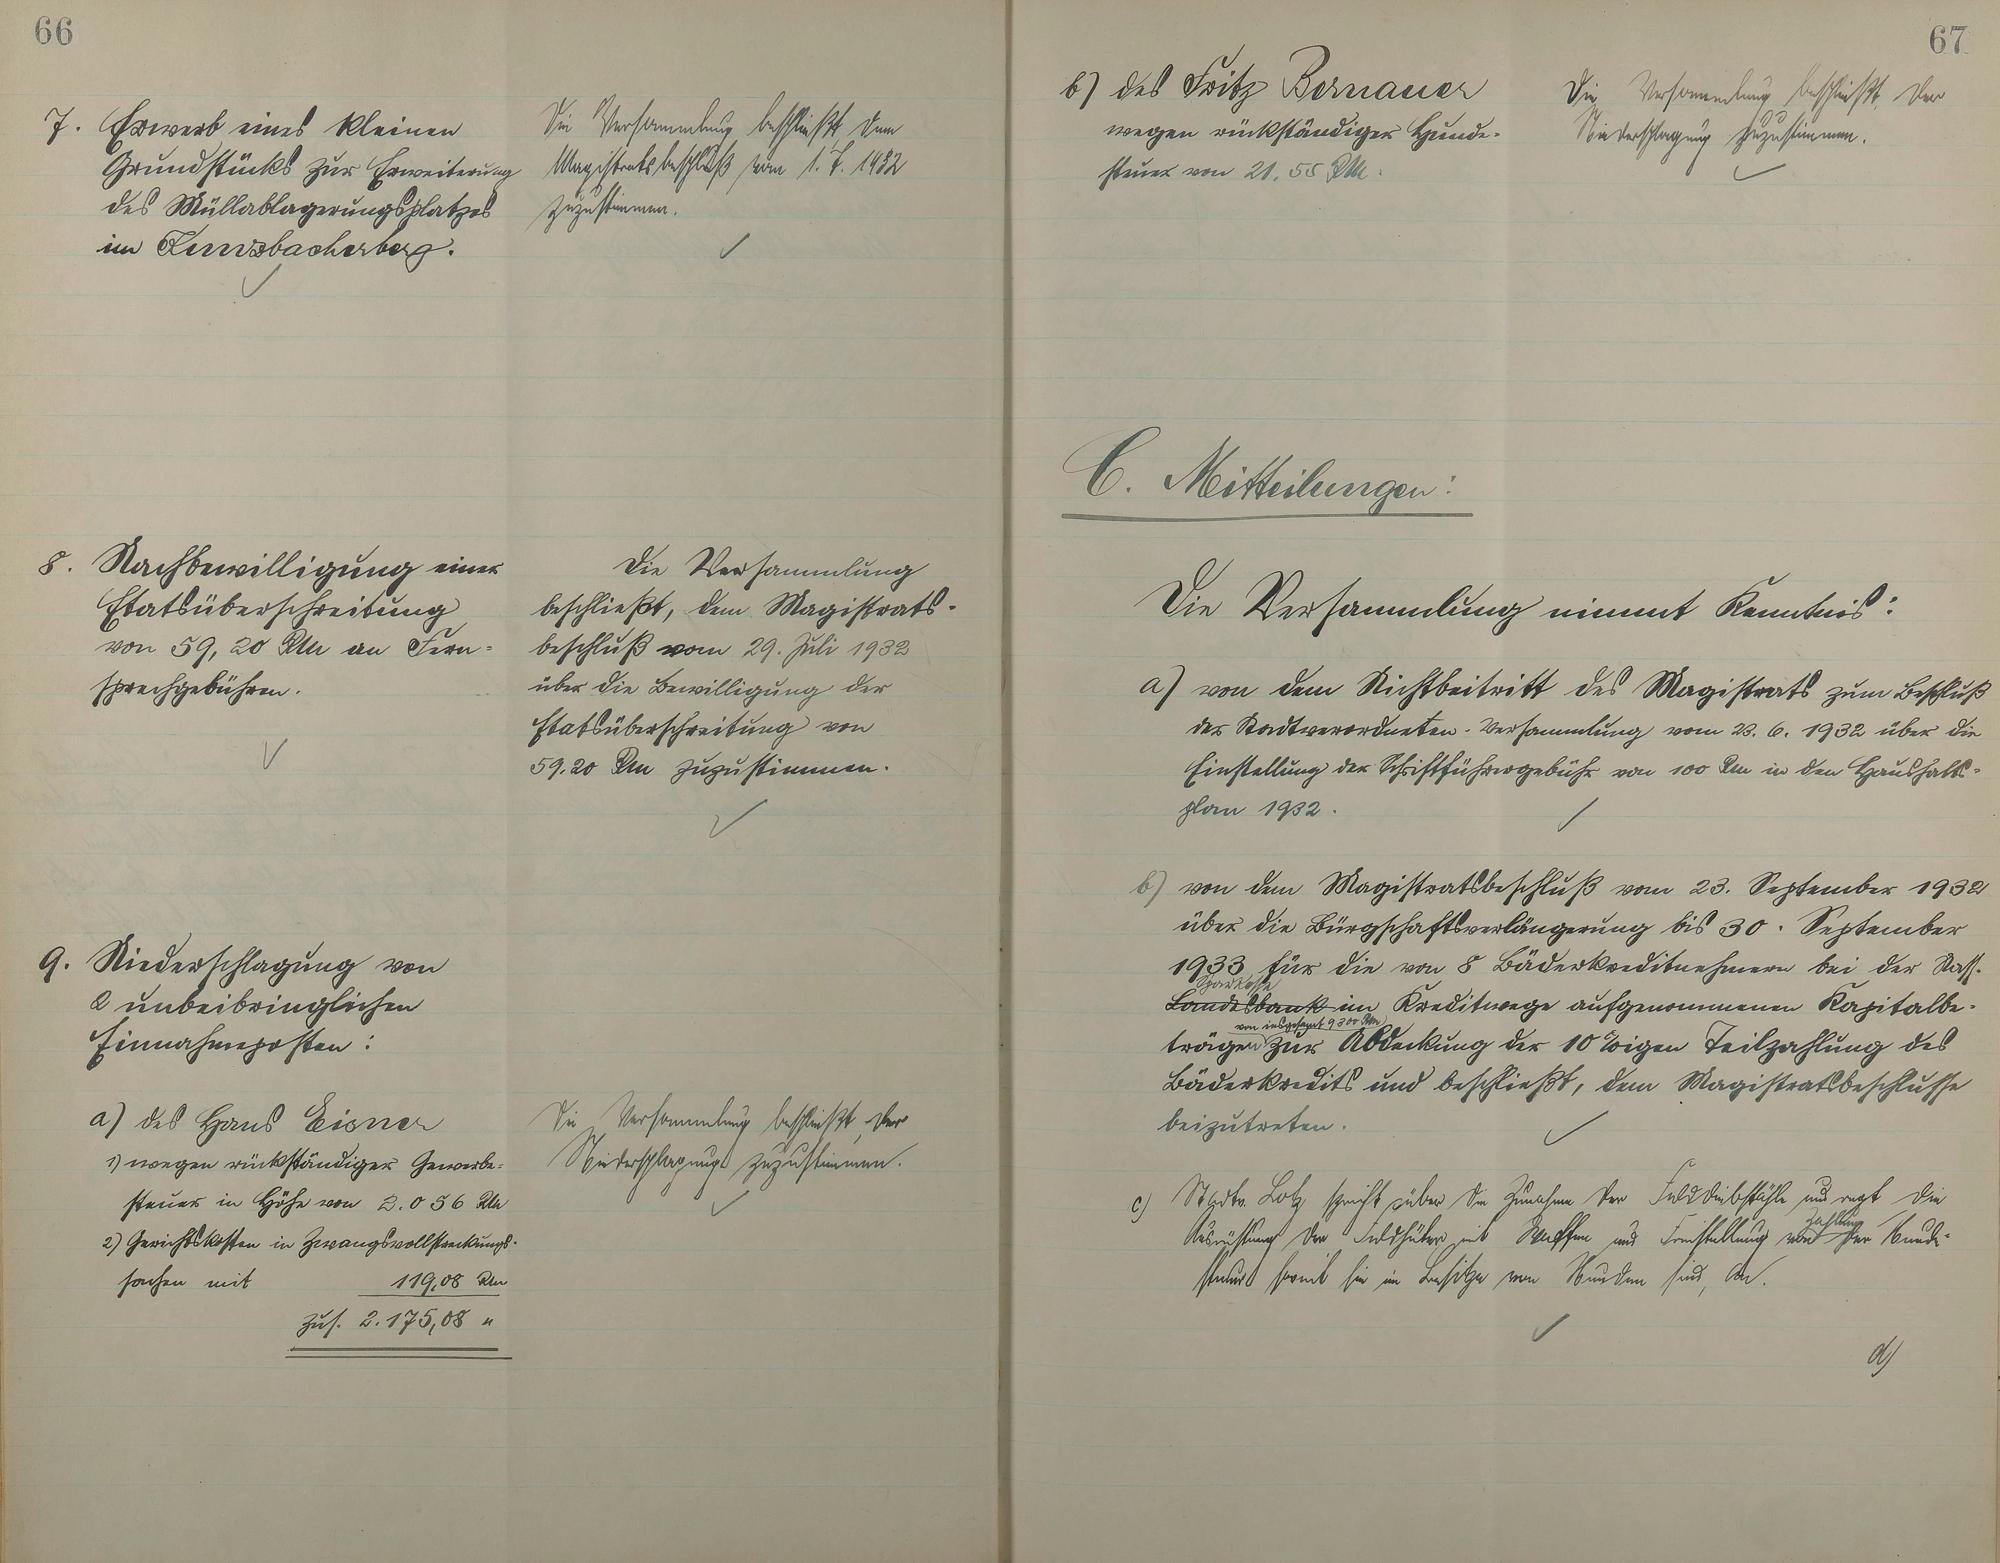 66
7. Erwerb eines kleinen
Grundstücks zur Erweiterung
des Müllablagerungsplatzes
im
Die Versammlung beschließt dem
Magistratsbeschluß vom 1. 7. 1932
zuzustimmen.
8. Nachbewilligung einer
Etatsüberschreitung
von 59,20 RM an Fern-
sprechgebühren.
Die Versammlung
beschließt, dem Magistrats-
beschluß vom 29. Juli 1932
über die Bewilligung der
Etatsüberschreitung von
59.20 RM zuzustimmen.
9. Niederschlagung von
2 unbeibringlichen
Einnahmeposten:
a) des Hans Eisner
1) wegen rückständiger Gewerbe-
steuer in Höhe von 2.056 RM
2) Gerichtskosten in Zwangsvollstreckungs-
sachen mit 119,08 RM
zus. 2.175,08 "
Die Versammlung beschließt, der
Niederschlagung zuzustimmen.
67
b) des Fritz Bernauer
wegen rückständiger Hunde-
steuer von 21.55 RM.
Die Versammlung beschließt, der
Niederschlagung zuzustimmen.
C. Mitteilungen:
Die Versammlung nimmt Kenntnis:
a) von dem Nichtbeitritt des Magistrats zum Beschluß
der Stadtverordneten-Versammlung vom 23. 6. 1932 über die
Einstellung der Schriftführergebühr von 100 RM in den Haushalts-
plan 1932.
b) von dem Magistratsbeschluß vom 23. September 1932
über die Bürgschaftsverlängerung bis 30. September
1933 für die von 8 Bäderkreditnehmern bei der Nass.
Sparkasse
Landesbank im Kreditwege aufgenommenen Kapitalbe-
von insgesamt 9300 RM
trägen zur Abdeckung der 10%igen Teilzahlung des
Bäderkredits und beschließt, dem Magistratsbeschlusse
beizutreten.
c) Stadtv. Lotz spricht über die Zunahme der Felddiebstähle und regt die
Ausrüstung der Feldhüter mit Waffen und Freistellung von
Zahlung
der Hunde-
steuer soweit sie im Besitze von Hunden sind, an.
d)